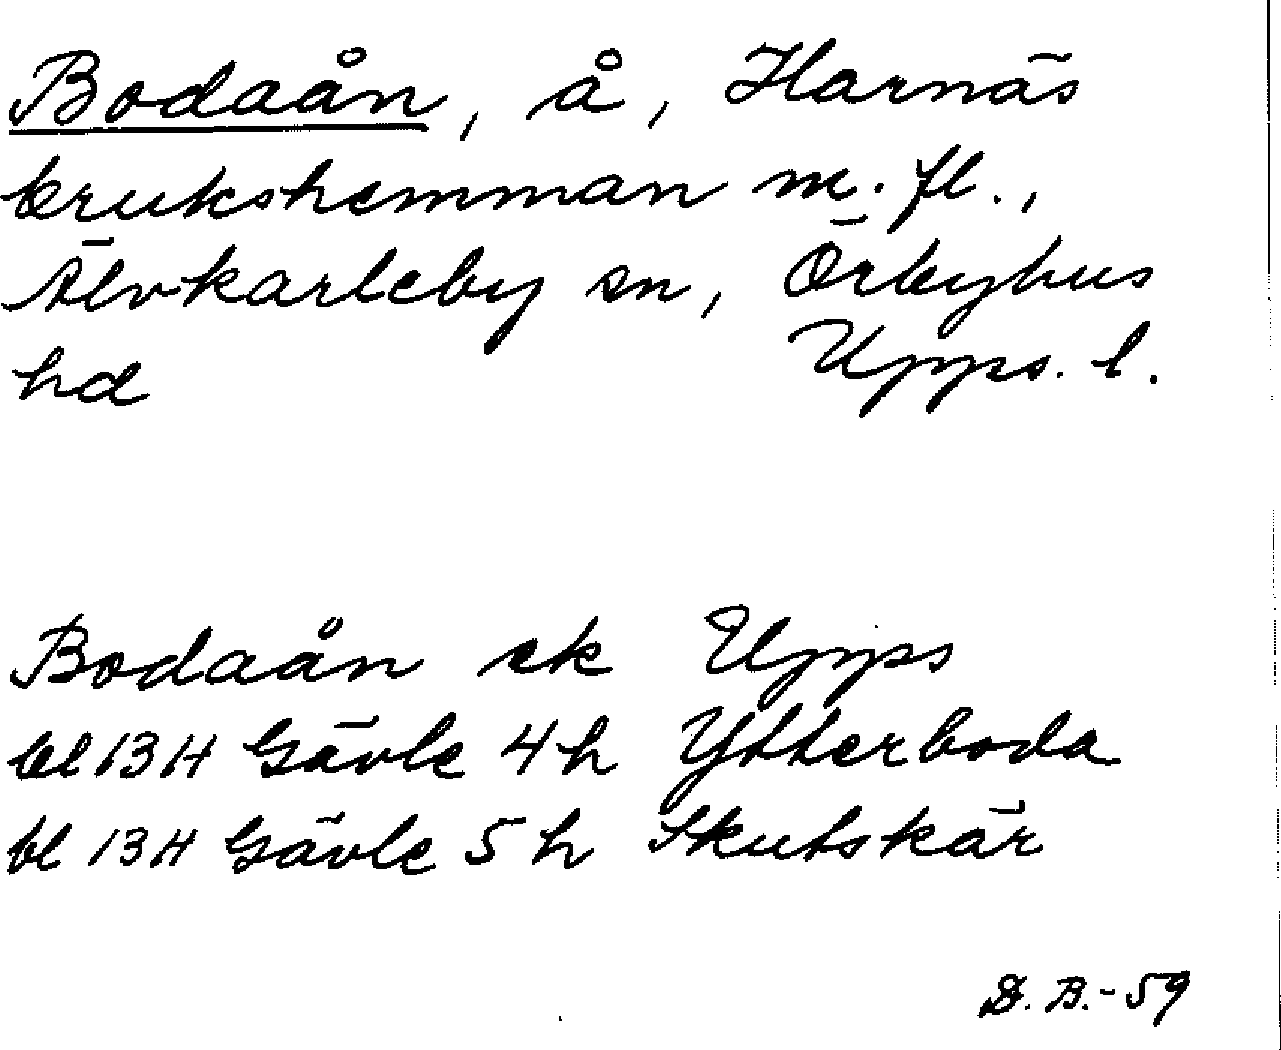 Bodaån, å, Harnäs
brukshemman m. fl.,
Älvkarleby sn, Örbyhus
hd Upps. l.
Bodaån ek Upps
bl 13H Gävle 4h Ytterboda
bl 13H Gävle 5h Skutskär
D. B. - 59